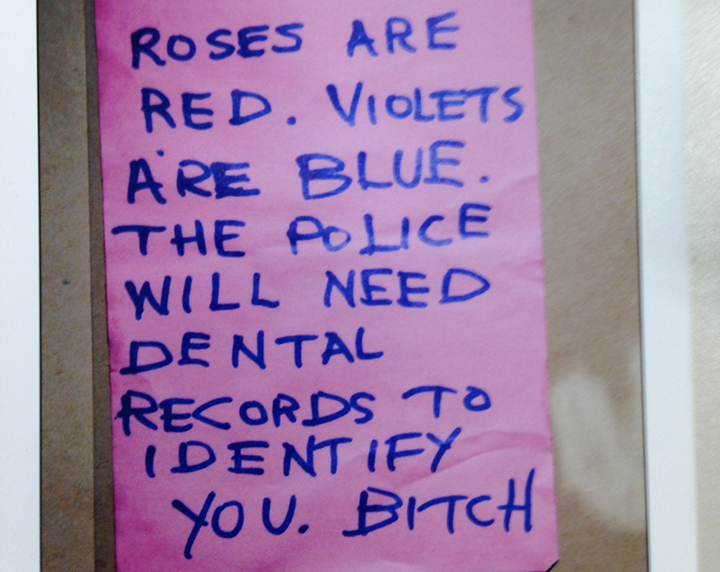 ROSES ARE
RED. VIOLETS
ARE BLUE.
THE POLICE
WILL NEED
DENTAL
RECORDS TO
IDENTIFY
YOU. BITCH